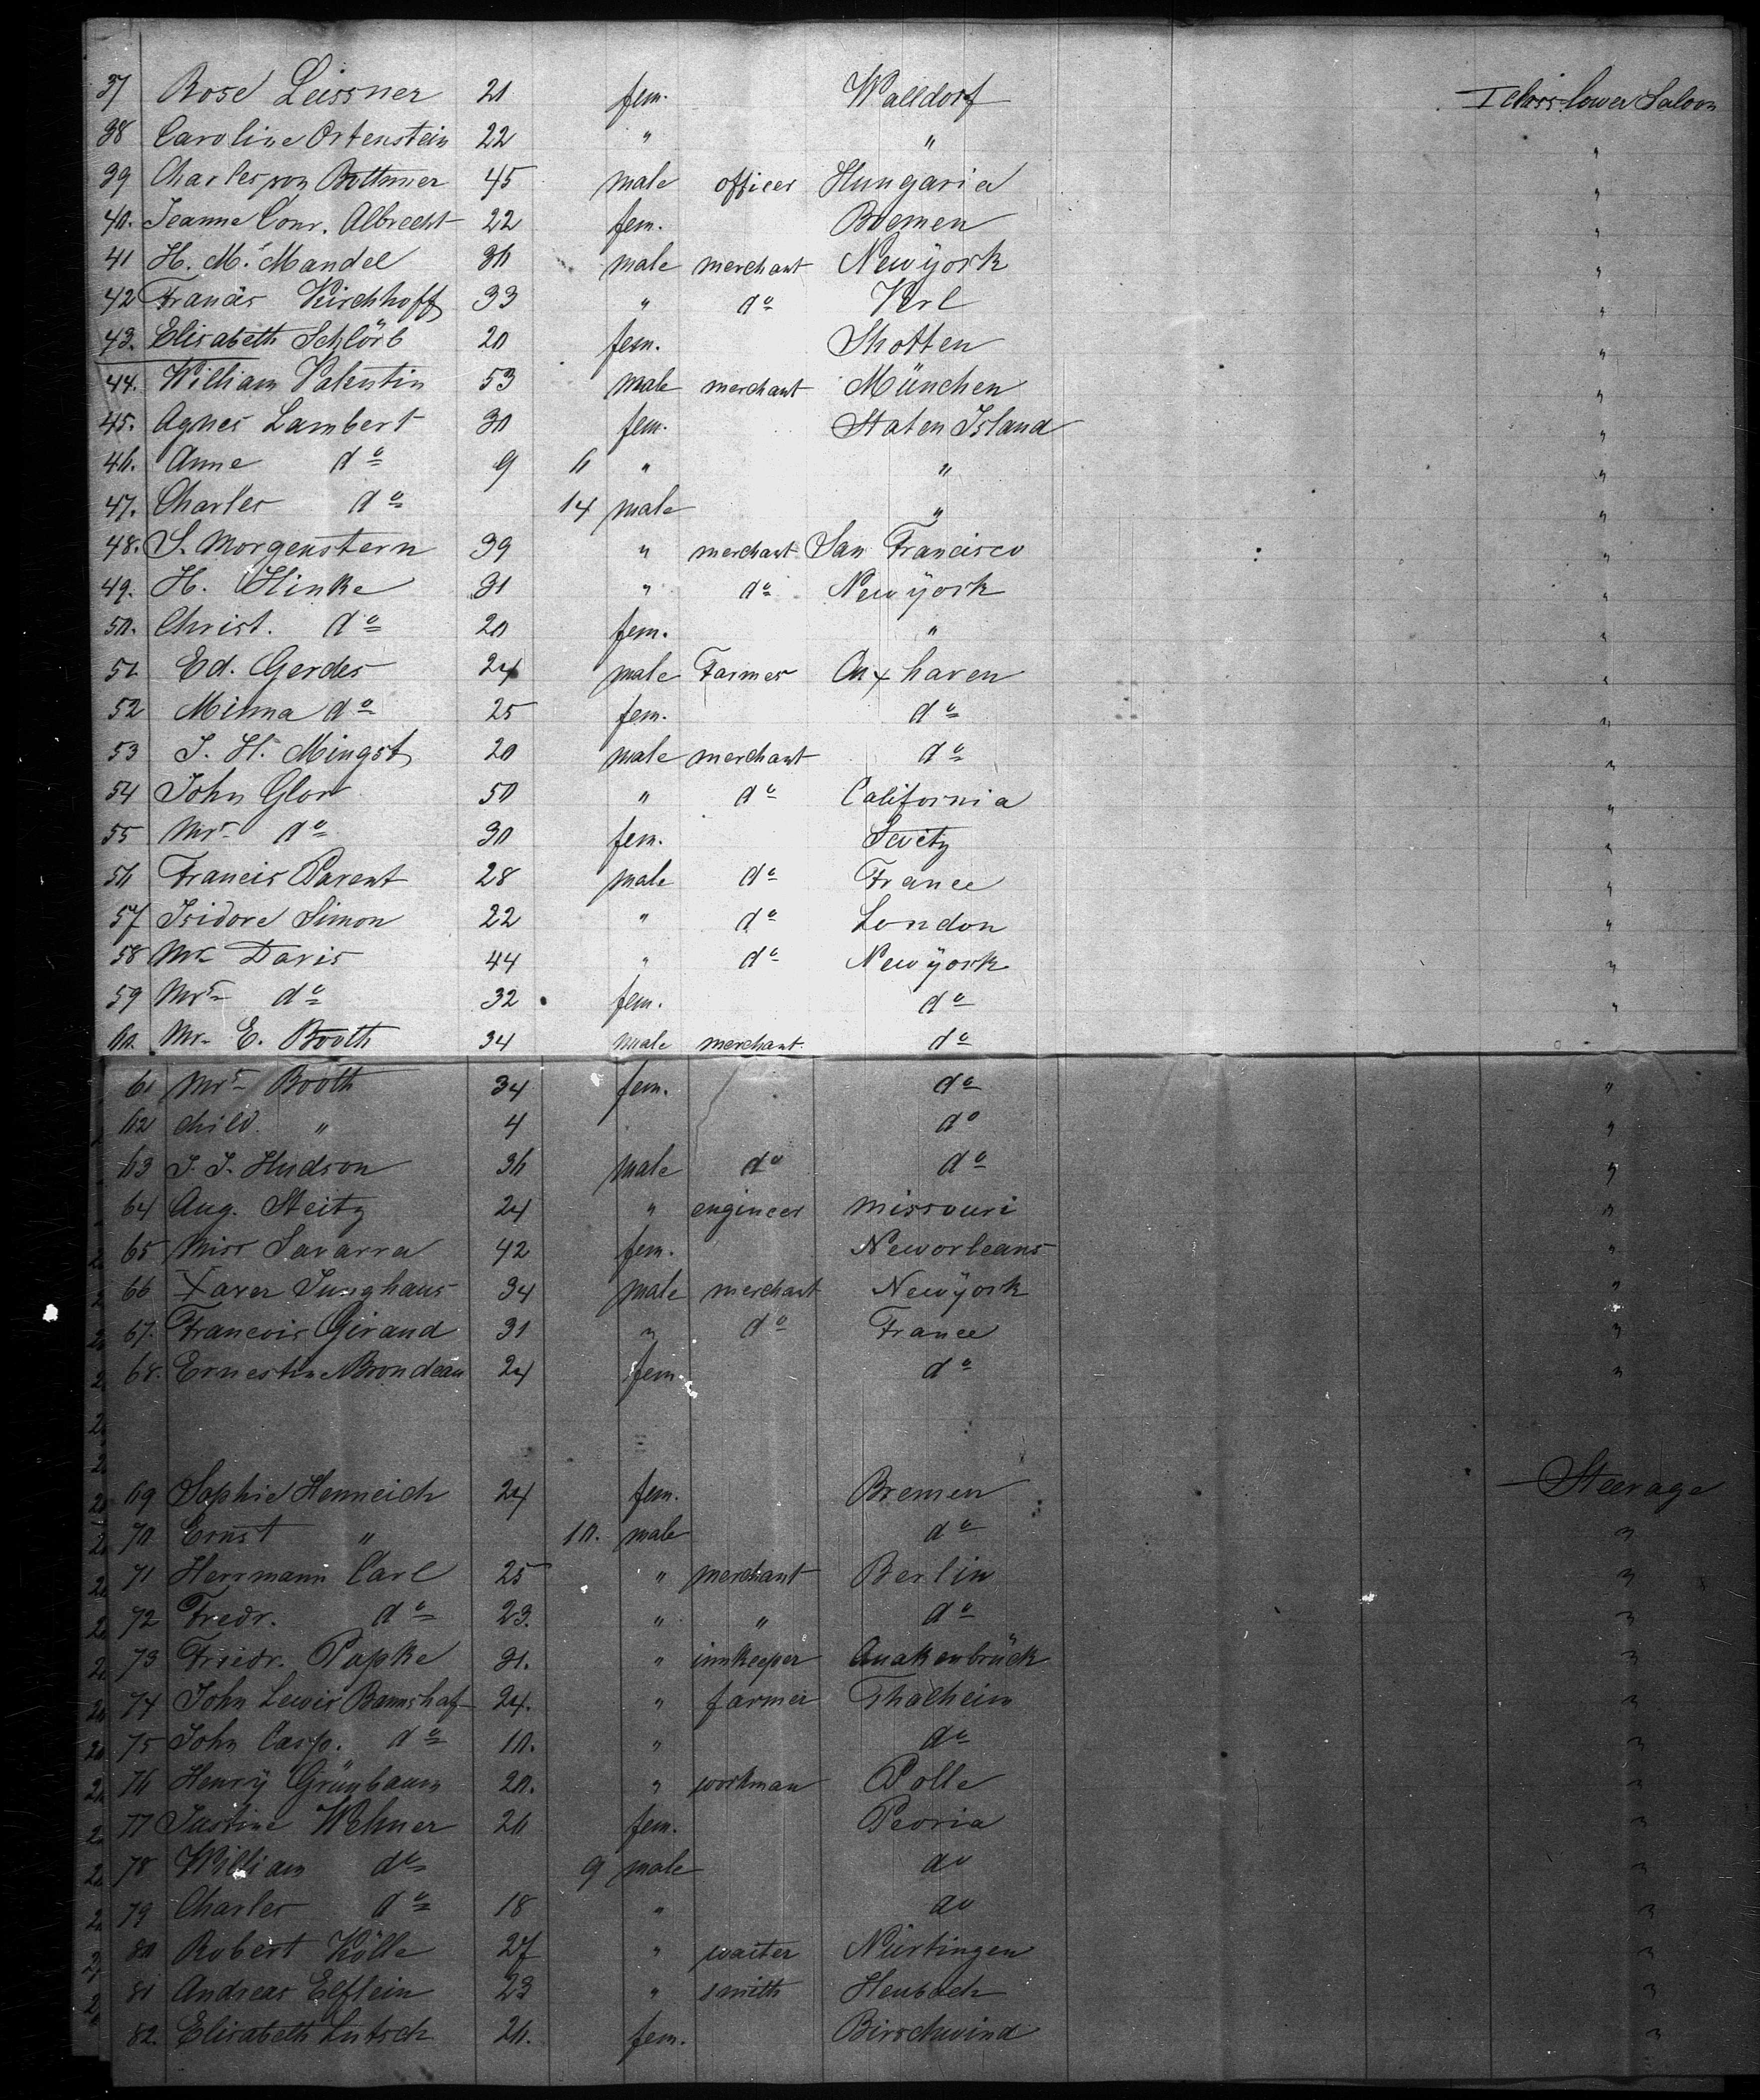 37 Rose Leissner 21 fem. Walldorf I class lower Saloon
38 Caroline Ortenstein 22 " " "
39 Charles von Bothmer 45 male officer Hungaria "
40. Jeanne Conr. Albrecht 22 fem. Bremen "
41 H. M. Mandel 36 male merchant Newÿork "
42 Kirchhoff 33 " do Verl "
43. Elisabeth Schlörb 20 fem. Shotten "
44. William Valentin 53 male merchant München "
45. Agnes Lambert 30 fem. Staten Island "
46. Anne do 9 6 " " "
47. Charles do 14 male " "
48. S. Morgenstern 39 " merchant San Francisco "
49. H. Hinke 31 " do Newÿork "
50. Christ. do 20 fem. " "
51 Ed. Gerdes 24 male Farmer Cuxhaven "
52 Minna do 25 fem. do "
53 J. H. Mingst 20 male merchant do "
54 John Glor 50 " do California "
55 Mrs do 30 fem. "
56 Francis Parent 28 male do France "
57 Isidore Simon 22 " do London "
58 Mr Davis 44 " do Newÿork "
59 Mrs do 32 fem. do "
60. Mr. E. Booth 34 male merchant. do
61 Mrs Booth 34 fem. do "
62 child. " 4 do "
63 J. J. Hudson 36 male do do "
64 Aug. Steitz 24 " engineer Missouri "
65 Miss Savarra 42 fem. Neworleans "
66 Xaver Junghaus 34 male merchant Newÿork "
67. Francois Giraud 31 " do France "
68. Ernestine Brondeau 24 fem. do "
69 Sophie Henneich 24 fem. Bremen Steerage
70 Ernst " 10. male do "
71 Herrmann Carl 25 " merchant Berlin "
72 Fredr. do 23. " " do "
73 Friedr. Papke 31. " innkeeper Quakenbrück "
74 John Lewis 24. " farmer Thalheim "
75 John Casp. do 10. " do "
76 Henrÿ Grünbaum 20. " workman Polle "
77 Justine Wehner 26 fem. Peoria "
78 William do 9 male do "
79 Charles do 18 " do "
80 Robert Kölle 27 " waiter Nürtingen "
81 Andreas Elflein 23 " smith Heubach "
82. Elisabeth Lutsch 26. fem. Birschwind "